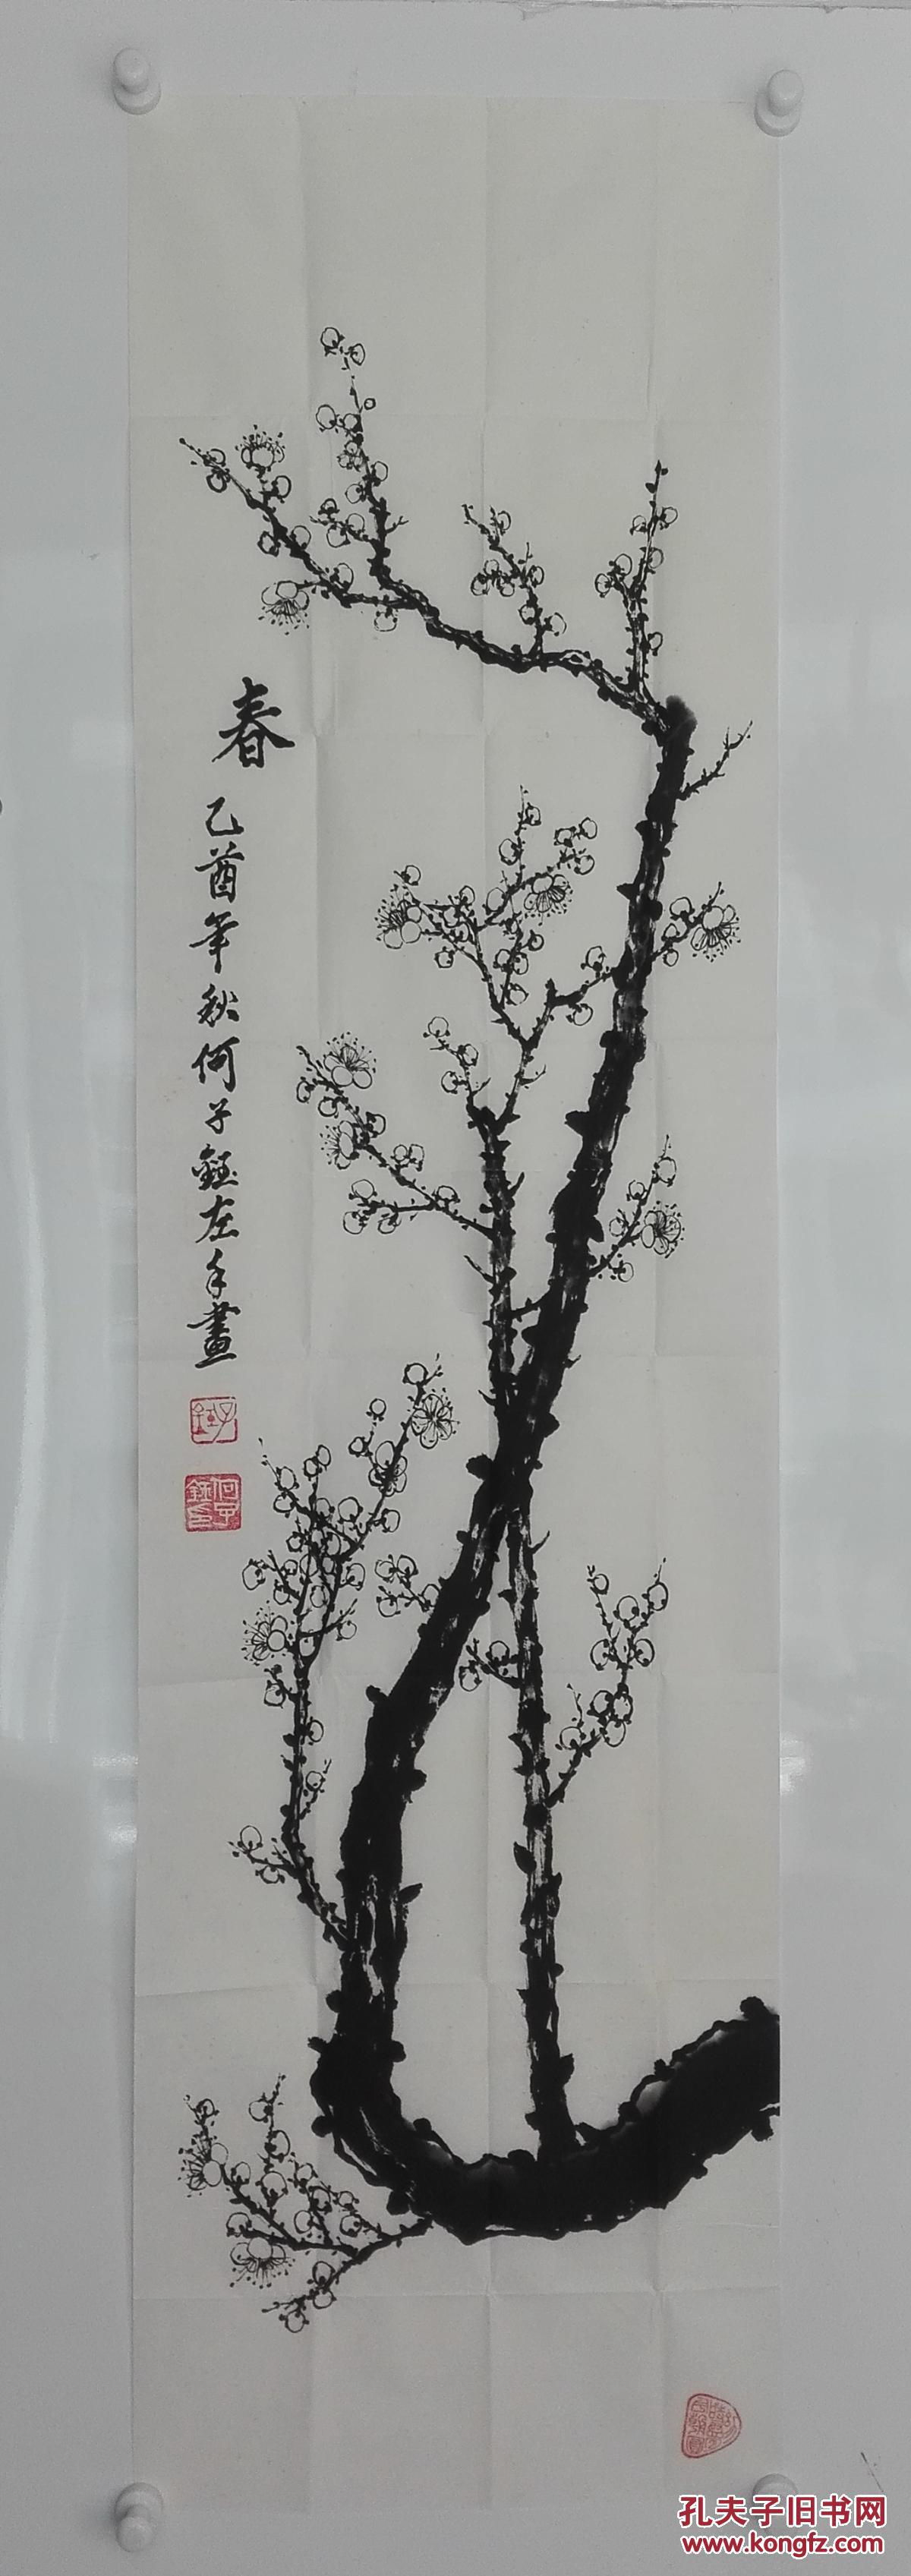 春
乙酉年秋何子鈺左手畫
子鈺
何子鈺印
孔夫子旧书网
www.kongfz.com